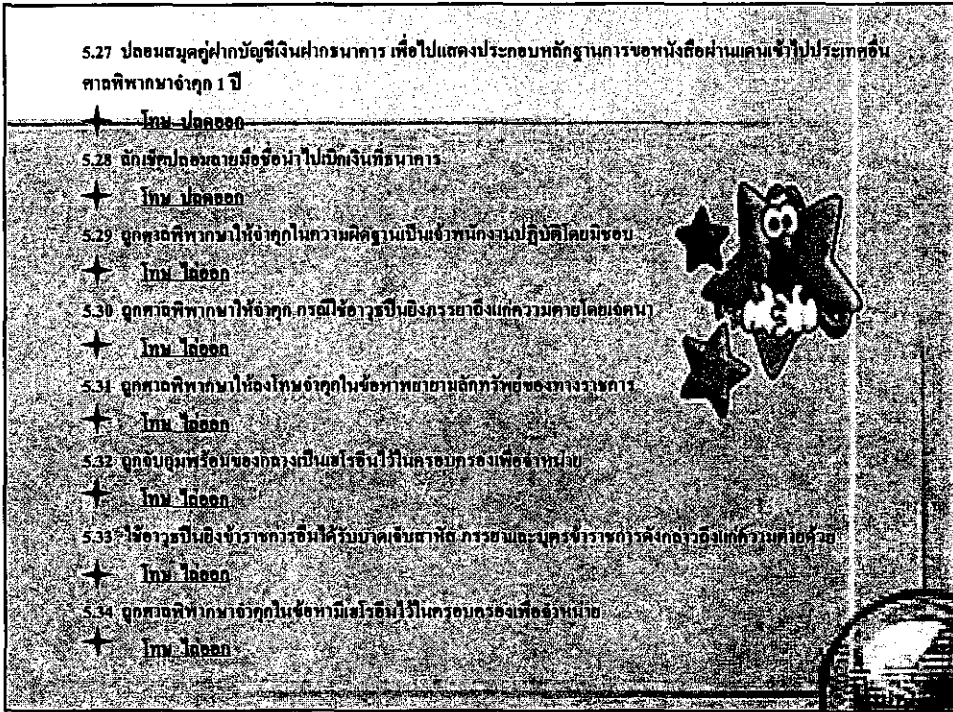 5.27 ปลอมสมุดคู่ฝากบัญชีเงินฝากธนาคาร เพื่อไปแสดงประกอบหลักฐานการขอหนังสือผ่านแดนเข้าไปประเทศอื่น
ศาลพิพากษาจำคุก 1 ปี
โทษ ปลดออก
5.28 ลักเช็คปลอมลายมือชื่อนำไปเบิกเงินที่ธนาคาร
โทษ ปลดออก
5.29 ถูกศาลพิพากษาให้จำคุกในความผิดฐานเป็นเจ้าพนักงานปฏิบัติโดยมิชอบ
โทษ ไล่ออก
5.30 ถูกศาลพิพากษาให้จำคุก กรณีใช้อาวุธปืนยิงภรรยาถึงแก่ความตายโดยเจตนา
โทษ ไล่ออก
5.31 ถูกศาลพิพากษาให้ลงโทษจำคุกในข้อหาพยายามลักทรัพย์ของทางราชการ
โทษ ไล่ออก
5.32 ถูกจับกุมพร้อมของกลางเป็นเฮโรอีนไว้ในครอบครองเพื่อจำหน่าย
โทษ ไล่ออก
5.33 ใช้อาวุธปืนยิงข้าราชการอื่นได้รับบาดเจ็บสาหัส ภรรยาและบุตรข้าราชการดังกล่าวถึงแก่ความตายด้วย
โทษ ไล่ออก
5.34 ถูกศาลพิพากษาจำคุกในข้อหามีเฮโรอีนไว้ในครอบครองเพื่อจำหน่าย
โทษ ไล่ออก